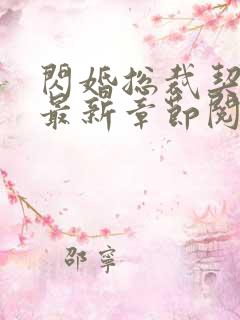 閃婚总裁契
最新章節閱
邵寧